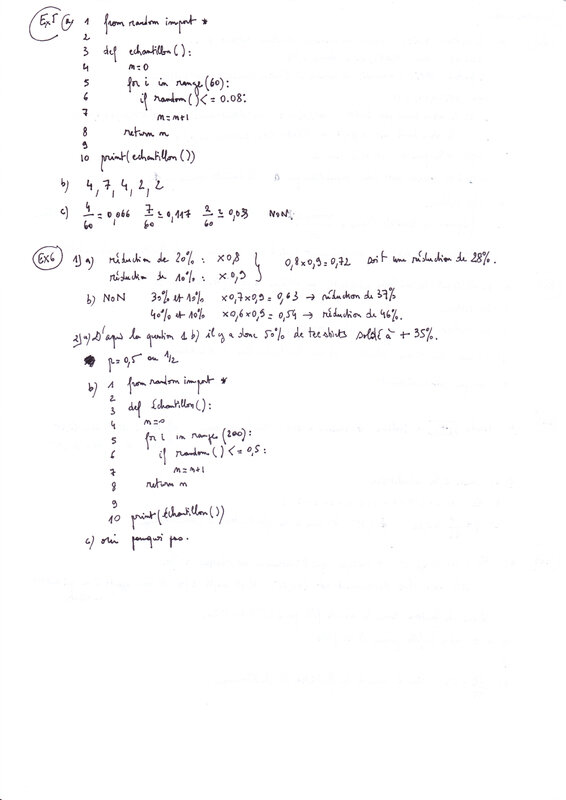 Ex5 a) 1 from random import *
2
3 def echantillon():
4 n=0
5 for i in range(60):
6 if random()<=0.08:
7 n=n+1
8 return n
9
10 print(echantillon())
b) 4, 7, 4, 2, 2
c) 4/60 = 0,066 7/60 ≃ 0,117 2/60 ≃ 0,03 NON.
Ex6 1) a) réduction de 20% : ×0,8 } 0,8×0,9=0,72 soit une réduction de 28%.
réduction de 10% : ×0,9
b) NON 30% et 10% ×0,7×0,9=0,63 → réduction de 37%
40% et 10% ×0,6×0,9=0,54 → réduction de 46%.
2) a) D'après la question 1 b) il y a donc 50% de tee shirts soldé à + 35%.
p=0,5 ou 1/2
b) 1 from random import *
2
3 def échantillon():
4 n=0
5 for i in range(200):
6 if random()<=0,5:
7 n=n+1
8 return n
9
10 print(échantillon())
c) oui pourqui pas.